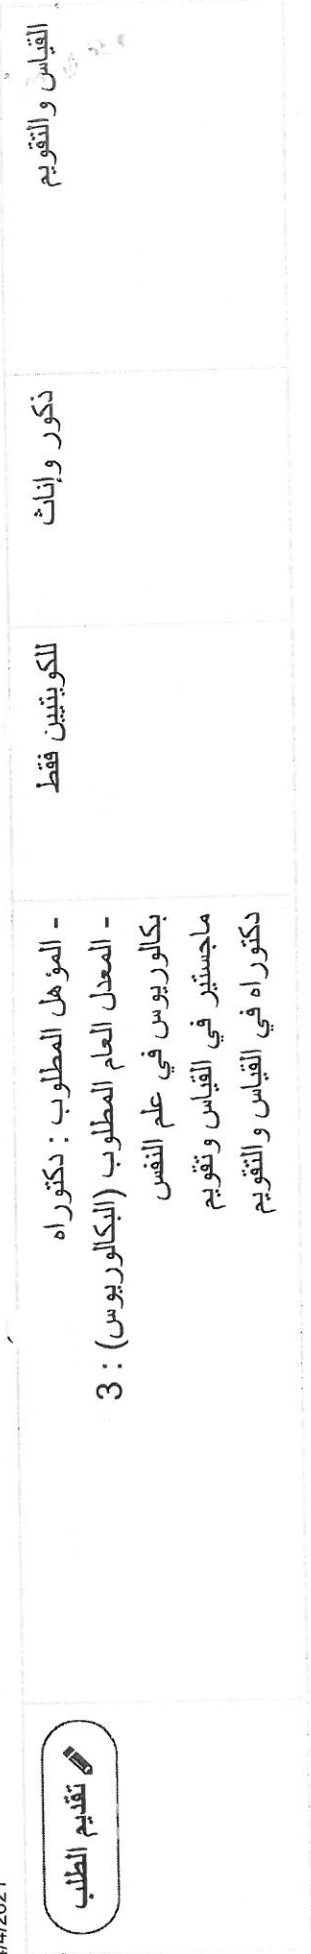 القياس والتقويم
ذكور وإناث
للكويتيين فقط
- المؤهل المطلوب : دكتوراه
- المعدل العام المطلوب (البكالوريوس) : 3
بكالوريوس في علم النفس
ماجستير في القياس وتقويم
دكتوراه في القياس والتقويم
تقديم الطلب